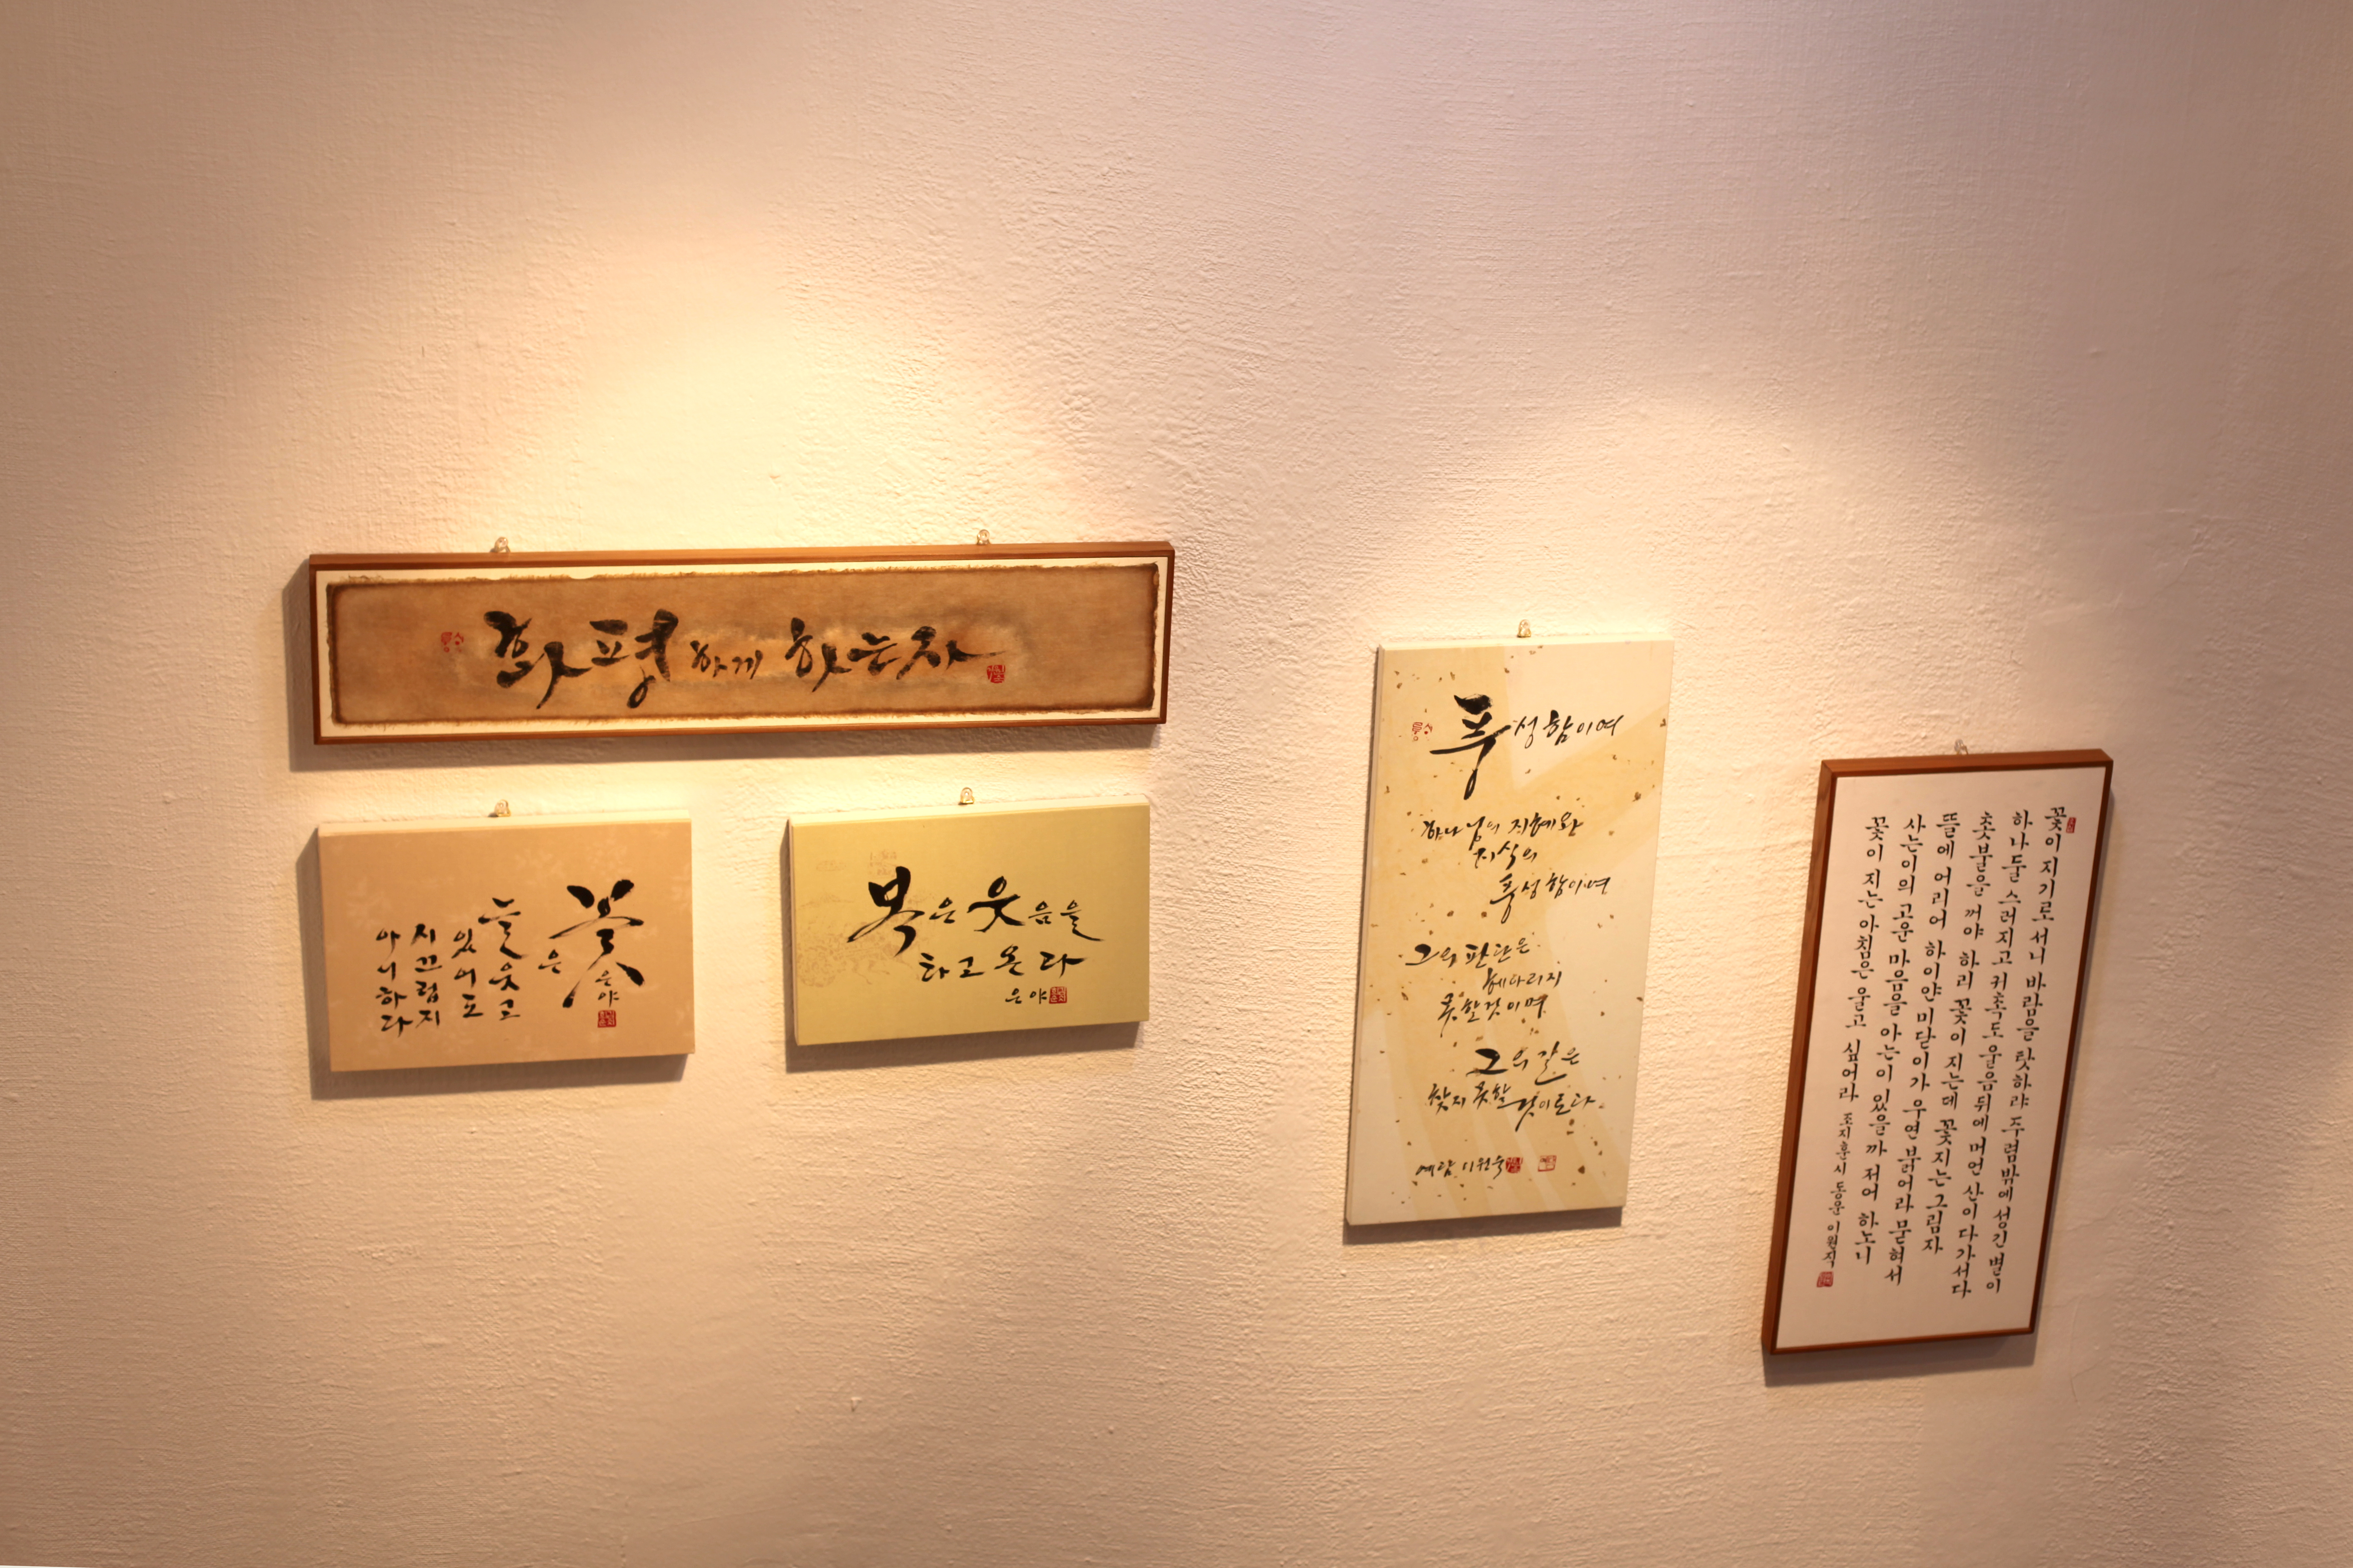 화평하게 하는자
꽃은
늘웃고
있어도
시끄럽지
아니하다
은야
복은 웃음을
타고 온다
은야
풍성함이여
하나님의 지혜와
지식의
풍성함이여
그의 판단은
헤아리지
못할것이며
그의 길은
찾지 못할 것이로다
예람 이원욱
꽃이 지기로서니 바람을 탓하랴 주렴밖에 성긴 별이
하나 둘 스러지고 귀촉도 울음뒤에 머언 산이 다가서다
촛불을 꺼야 하리 꽃이 지는데 꽃지는 그림자
뜰에 어리어 하이얀 미닫이가 우련 붉어라 묻혀서
사는이의 고운 마음을 아는이 있을까 저어 하노니
꽃이 지는 아침은 울고 싶어라 조지훈시 동운 이원직